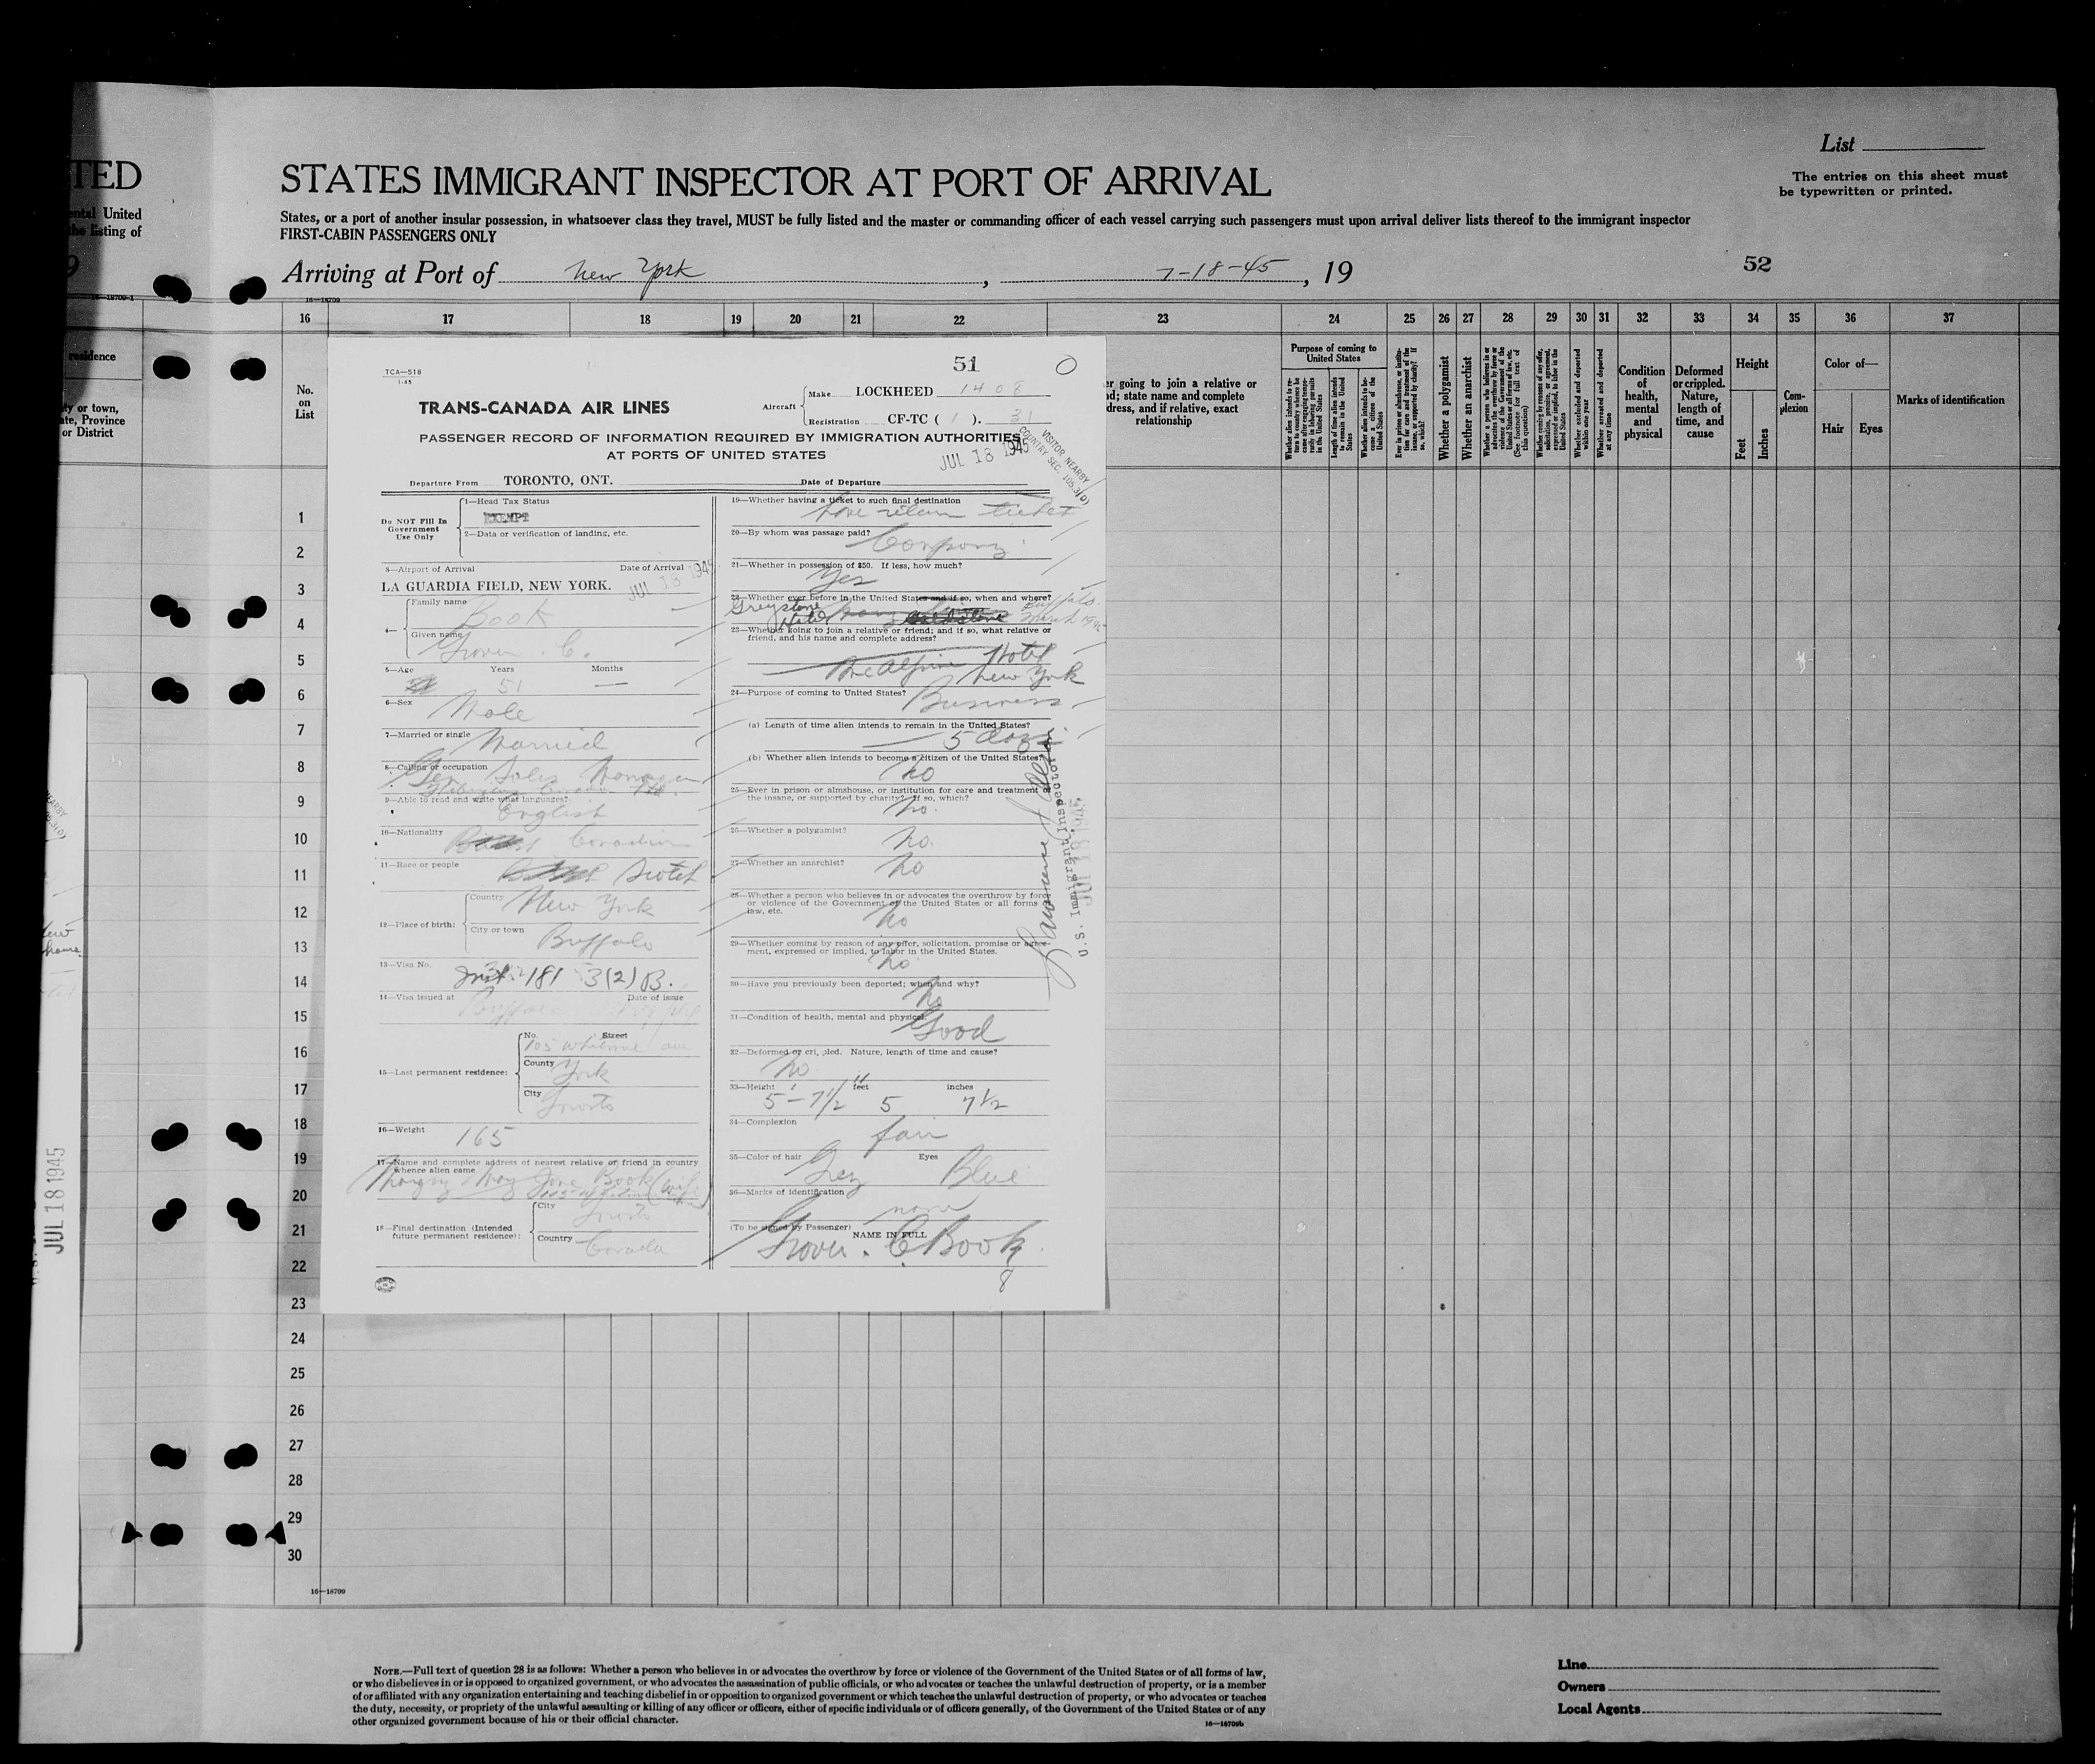 List
TED
STATES IMMIGRANT INSPECTOR AT PORT OF ARRIVAL
The entries on this sheet must
be typewritten or printed.
ental United
the listing of
States, or a port of another insular possession, in whatsoever class they travel, MUST be fully listed and the master or commanding officer of each vessel carrying such passengers must upon arrival deliver lists thereof to the immigrant inspector
FIRST-CABIN PASSENGERS ONLY
Arriving at Port of New York, 7-18-45, 19
52
16—18709-1
16—18709
16 17 18 19 20 21 22 23 24 25 26 27 28 29 30 31 32 33 34 35 36 37
residence
ty or town,
ate, Province
or District
No.
on
List
er going to join a relative or
nd; state name and complete
dress, and if relative, exact
relationship
Purpose of coming to
United States
Whether a polygamist
Whether an anarchist
Whether excluded and deported
within one year
Whether arrested and deported
at any time
Condition
of
health,
mental
and
physical
Deformed
or crippled.
Nature,
length of
time, and
cause
Height
Feet
Inches
Com-
plexion
Color of—
Hair
Eyes
Marks of identification
TCA—518
1-45
51
O
TRANS-CANADA AIR LINES
Aircraft
Make LOCKHEED 1408
Registration CF-TC ( 1 ). 31
PASSENGER RECORD OF INFORMATION REQUIRED BY IMMIGRATION AUTHORITIES
AT PORTS OF UNITED STATES
JUL 18 1945
VISITOR NEARBY
COUNTRY SEC.
Departure From TORONTO, ONT. Date of Departure
Do NOT Fill In
Government
Use Only
1—Head Tax Status
EXEMPT
2—Data or verification of landing, etc.
3—Airport of Arrival Date of Arrival
LA GUARDIA FIELD, NEW YORK. JUL 18 1945
4—
Family name Book
Given name Grover C.
5—Age Years Months
51 —
6—Sex Male
7—Married or single Married
8—Calling or occupation
Gen Sales Manager
9—Able to read and write what languages?
English
10—Nationality Canadian
11—Race or people Scotch
12—Place of birth:
Country New York
City or town Buffalo
13—Visa No. 181 3(2) B.
14—Visa issued at Date of issue
15—Last permanent residence:
No. Street
105
County York
City Toronto
16—Weight 165
17—Name and complete address of nearest relative or friend in country
whence alien came
May Jane Book (Wife)
18—Final destination (Intended
future permanent residence):
City Toronto
Country Canada
19—Whether having a ticket to such final destination
have return ticket
20—By whom was passage paid?
Company
21—Whether in possession of $50. If less, how much?
Yes
22—Whether ever before in the United States and if so, when and where?
Greystone
Hotel
Buffalo
23—Whether going to join a relative or friend; and if so, what relative or
friend, and his name and complete address?
McAlpin Hotel
New York
24—Purpose of coming to United States?
Business
(a) Length of time alien intends to remain in the United States?
5 days
(b) Whether alien intends to become a citizen of the United States?
no
25—Ever in prison or almshouse, or institution for care and treatment of
the insane, or supported by charity? If so, which?
no.
26—Whether a polygamist?
no.
27—Whether an anarchist?
no
28—Whether a person who believes in or advocates the overthrow by force
or violence of the Government of the United States or all forms of
law, etc.
no
29—Whether coming by reason of any offer, solicitation, promise or agree-
ment, expressed or implied, to labor in the United States.
no
30—Have you previously been deported; when and why?
no
31—Condition of health, mental and physical
Good
32—Deformed or crippled. Nature, length of time and cause?
no
33—Height feet inches
5-7½ 5 7½
34—Complexion
fair
35—Color of hair Eyes
Grey Blue
36—Marks of identification
none
(To be signed by Passenger) NAME IN FULL
Grover. C. Book
8
U.S. Immigrant Inspector
JUL 18 1945
JUL 18 1945
1
2
3
4
5
6
7
8
9
10
11
12
13
14
15
16
17
18
19
20
21
22
23
24
25
26
27
28
29
30
16—18709
NOTE.—Full text of question 28 is as follows: Whether a person who believes in or advocates the overthrow by force or violence of the Government of the United States or of all forms of law,
or who disbelieves in or is opposed to organized government, or who advocates the assassination of public officials, or who advocates or teaches the unlawful destruction of property, or is a member
of or affiliated with any organization entertaining and teaching disbelief in or opposition to organized government or which teaches the unlawful destruction of property, or who advocates or teaches
the duty, necessity, or propriety of the unlawful assaulting or killing of any officer or officers, either of specific individuals or of officers generally, of the Government of the United States or of any
other organized government because of his or their official character.
16—18709b
Line
Owners
Local Agents